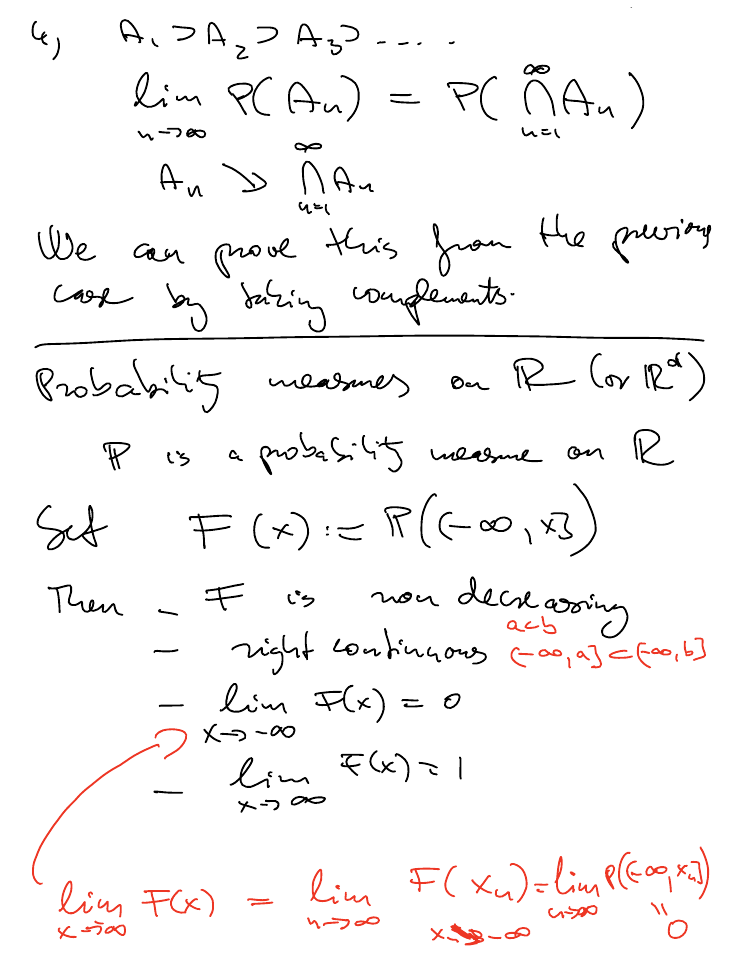 4, A₁ ⊃ A₂ ⊃ A₃ ⊃ ....
lim P(Aₙ) = P(∩Aₙ)
n→∞ ∞ n=1
Aₙ ⊃ ∩Aₙ
∞ n=1
We can prove this from the previous
case by taking complements.
Probability measures on ℝ (or ℝᵈ)
ℙ is a probability measure on ℝ
Set F(x) := ℙ((-∞, x])
Then - F is non decreasing
a<b
- right continuous (-∞, a] ⊂ (-∞, b]
- lim F(x) = 0
x→-∞
- lim F(x) = 1
x→∞
lim F(x) = lim F(xₙ) = lim P((-∞, xₙ])
x→-∞ n→∞ xₙ→-∞ n→∞
"
0